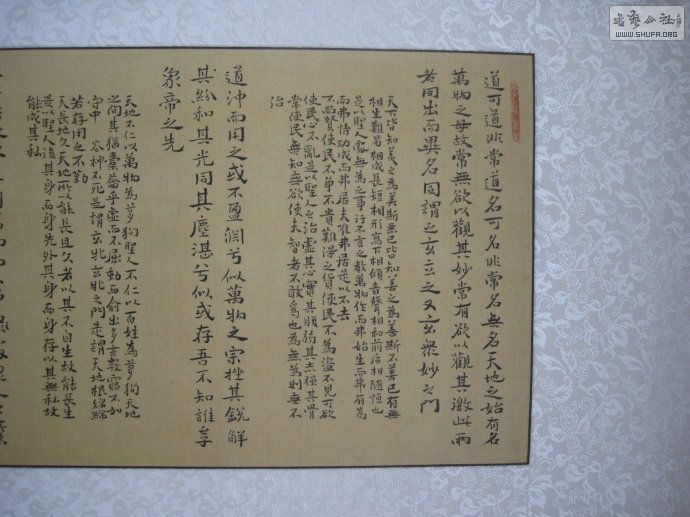 道可道非常道名可名非常名無名天地之始有名
萬物之母故常無欲以觀其妙常有欲以觀其徼此兩
者同出而異名同謂之玄玄之又玄衆妙之門
天下皆知美之為美斯惡已皆知善之為善斯不善已有無
相生難易相成長短相形高下相傾音聲相和前后相隨恒也
是以聖人處無為之事行不言之教萬物作而弗始生而弗有為
而弗恃功成而弗居夫唯弗居是以不去
不尚賢使民不爭不貴難得之貨使民不為盜不見可欲
使民心不亂是以聖人之治虛其心實其腹弱其志強其骨
常使民無知無欲使夫智者不敢為也為無為則無不
治
道沖而用之或不盈淵兮似萬物之宗挫其銳解
其紛和其光同其塵湛兮似或存吾不知誰子
象帝之先
天地不仁以萬物為芻狗聖人不仁以百姓為芻狗天地
之間其猶橐籥乎虛而不屈動而俞出多言數窮不如
守中 谷神不死是謂玄牝玄牝之門是謂天地根綿綿
若存用之不勤
天長地久天地所以能長且久者以其不自生故能長生
是以聖人後其身而身先外其身而身存以其無私故
能成其私
WWW.SHUFA.ORG